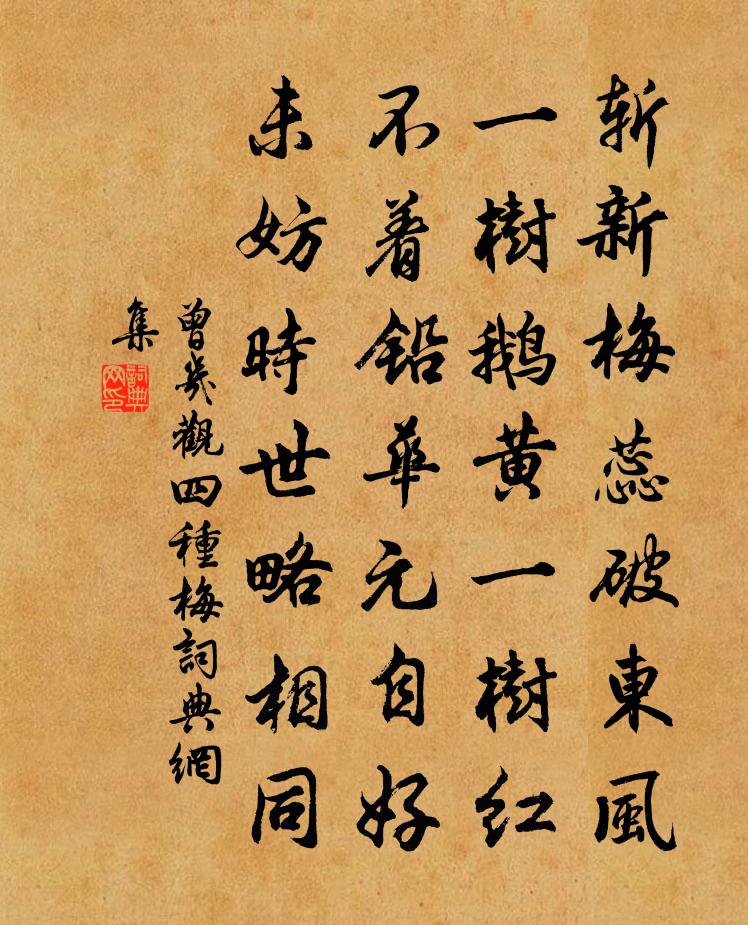 斬新梅蕊破東風
一樹鵝黄一樹紅
不着鉛華元自好
未妨時世略相同
曾幾觀四種梅詞典網
集
詞典
网印